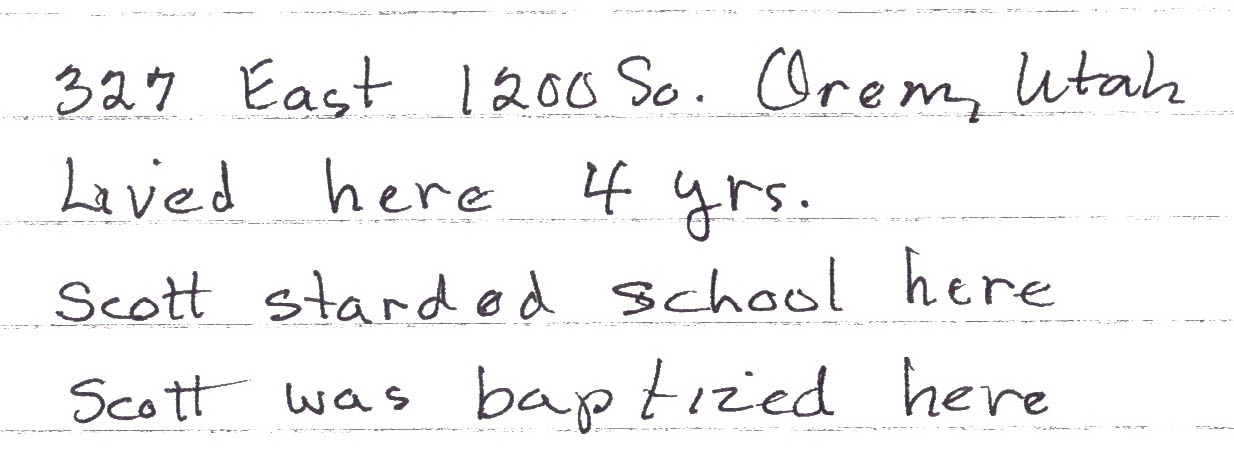 327 East 1200 So. Orem, Utah
Lived here 4 yrs.
Scott starded school here
Scott was baptized here